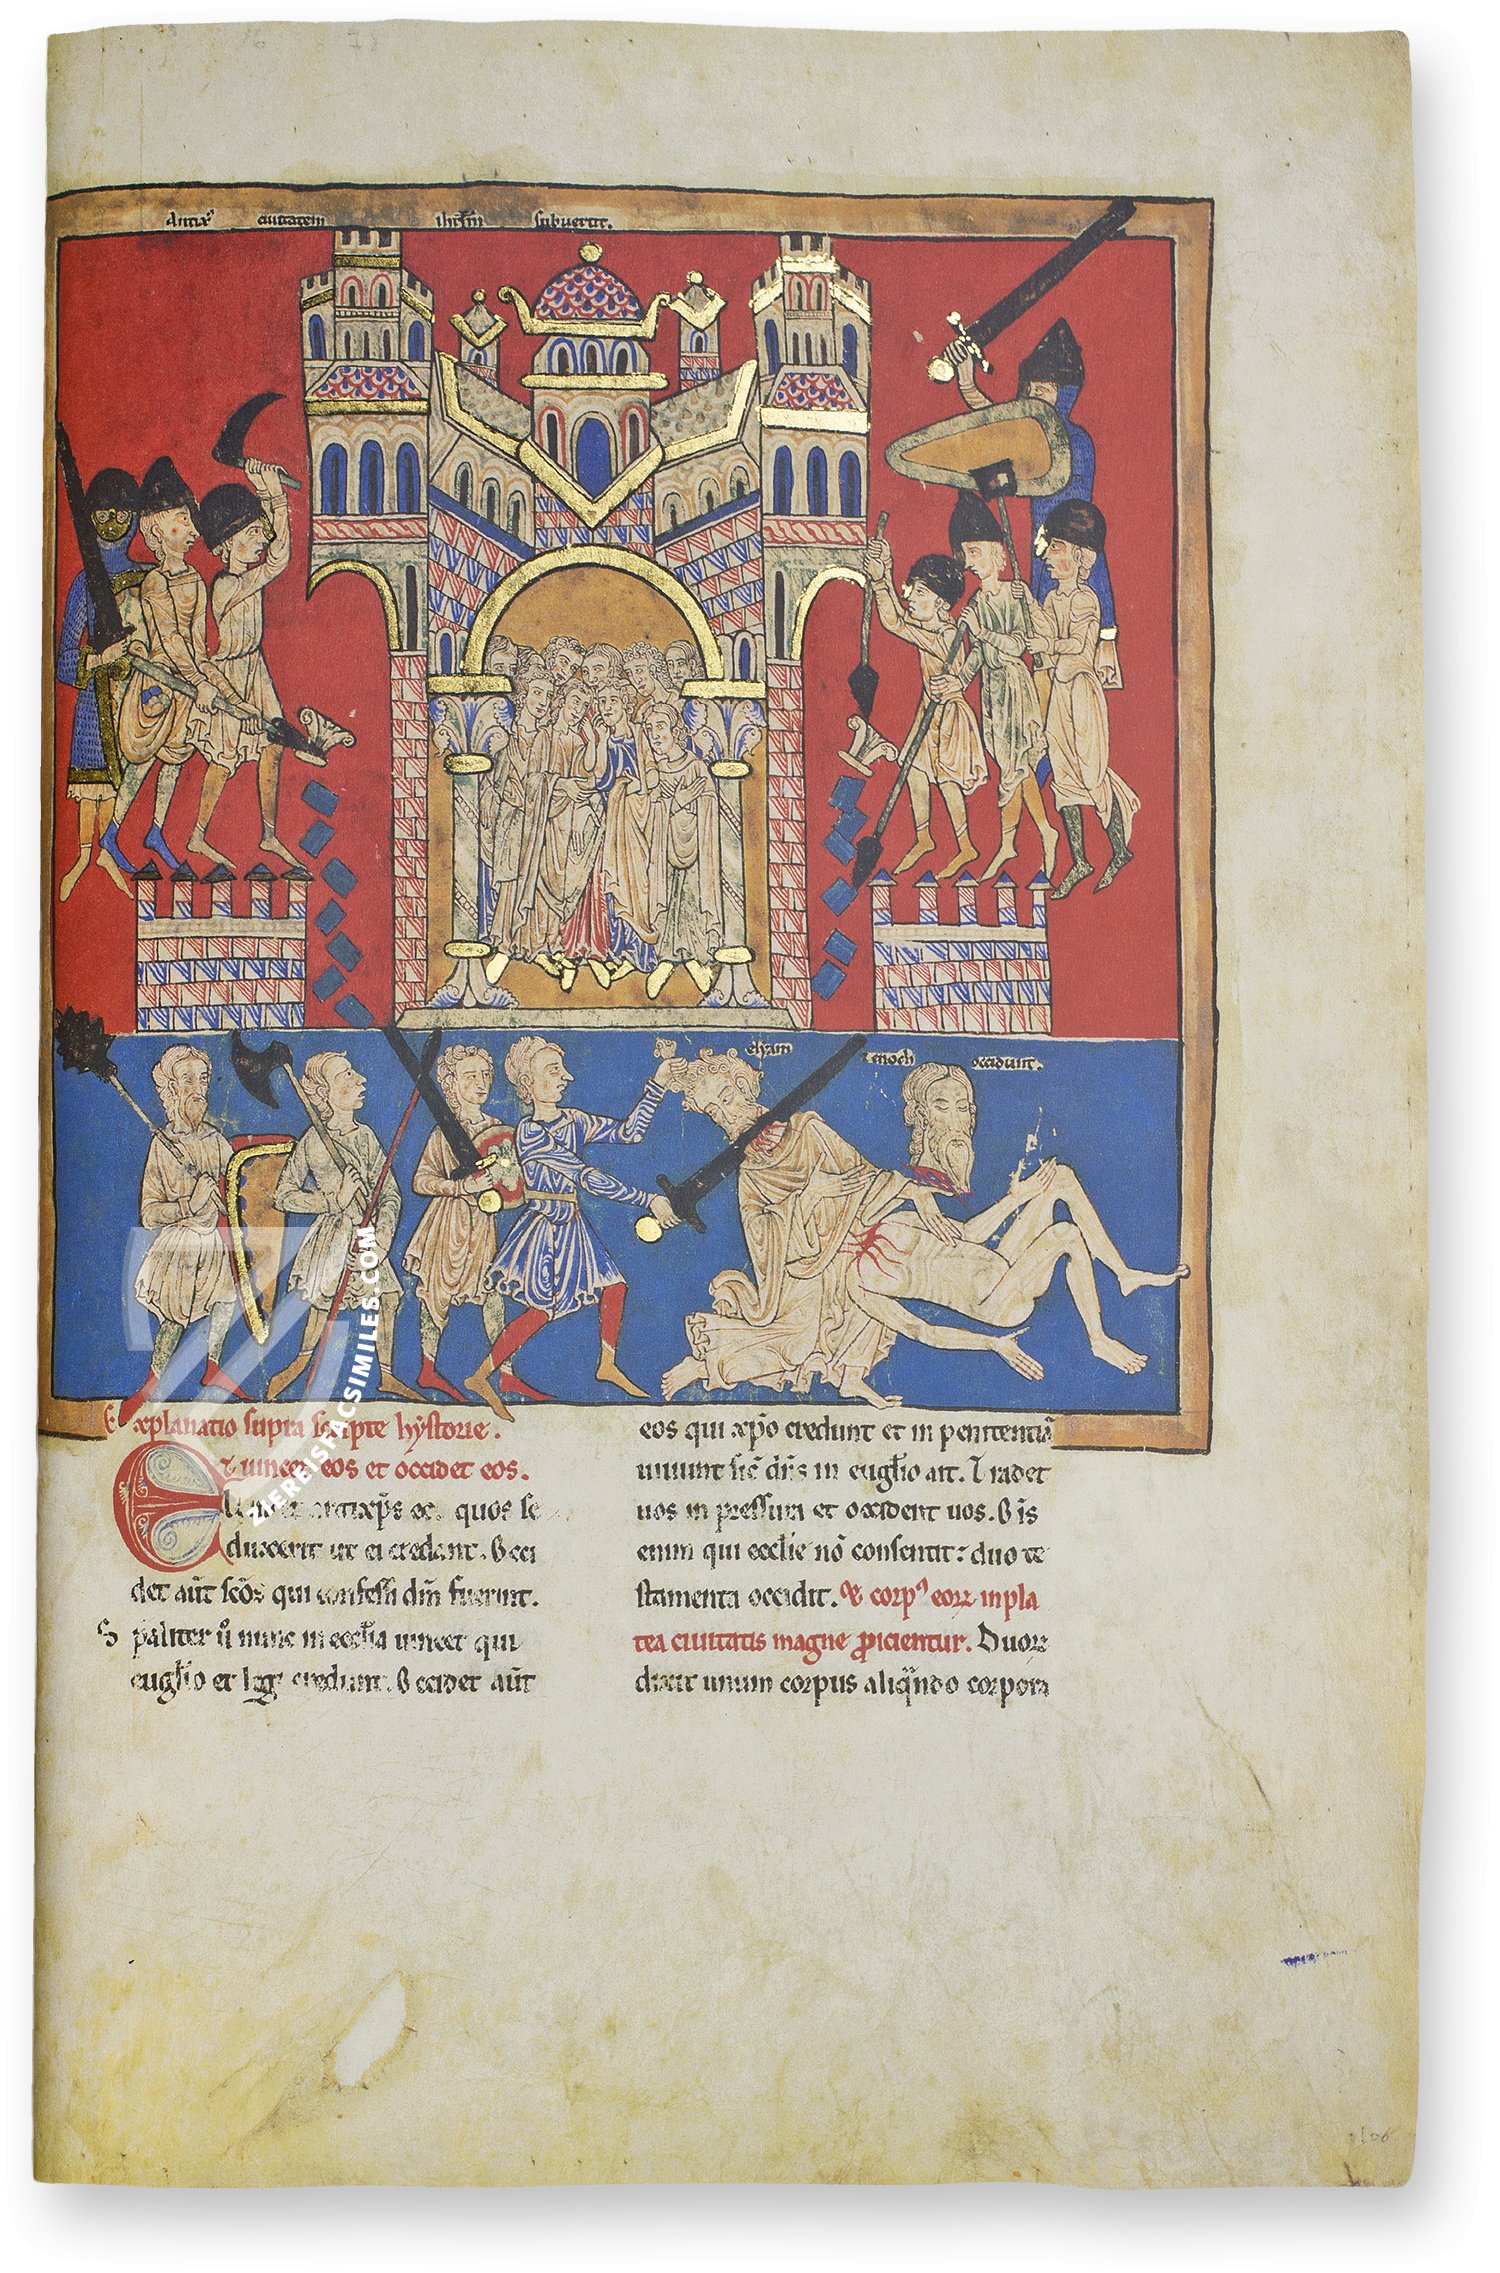 Antixp̄s ciuitatem ihrl̄m subuertit.
eliam enoch occidunt.
Explanatio supra scripte hystorie.
Et uincet eos et occidet eos.
quos se
duxerit ut ei credant. Occi
det aūt sc̄os qui confessi dn̄m fuerint.
Spaliter ū nunc in eccl̄ia uincet qui
eugl̄io et legi credunt. Occidet aūt
eos qui xp̄o credunt et in penitentia
uiuunt sic̄ dn̄s in eugl̄io ait. Tradet
uos in pressura et occident uos. Ois
enim qui eccl̄ie nō consentit: duo te
stamenta occidit. Et corpꝰ eorꝝ in pla
tea ciuitatis magne ꝓicientur. Duorꝝ
dixit unum corpus aliqn̄do corpora
ZIEREISFACSIMILES.COM